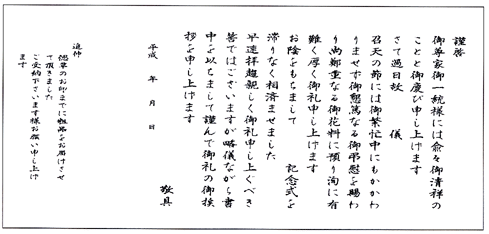 謹啓
御尊家御一統様には愈々御清祥の
ことと御慶び申し上げます
さて過日故　　儀
召天の節には御繁忙中にもかかわ
りませず御懇篤なる御弔慰を賜わ
り尚鄭重なる御花料に預り洵に有
難く厚く御礼申し上げます
お陰をもちまして　　記念式を
滞りなく相済ませました
早速拝趨親しく御礼申し上ぐべき
筈ではございますが略儀ながら書
中を以ちまして謹んで御礼の御挨
拶を申し上げます
敬具
平成　年　月　日
追伸
偲草のお印までに粗品をお届けさせ
て頂きました
ご受納下さいます様お願い申し上げ
ます